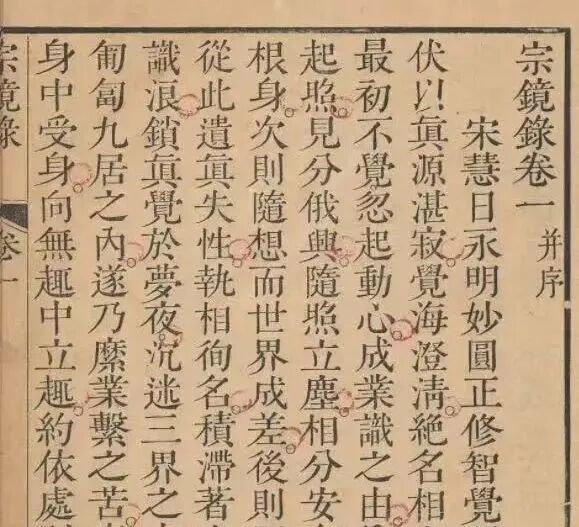 宗鏡錄卷一 并序
宋慧日永明妙圓正修智覺
伏以眞源湛寂覺海澄淸絶名相
最初不覺忽起動心成業識之由
起照見分俄興隨照立塵相分安
根身次則隨想而世界成差後則
從此遺眞失性執相徇名積滯著
識浪鎖眞覺於夢夜沉迷三界之
匍匐九居之內遂乃縻業繫之苦
身中受身向無趣中立趣約依處
宗鏡錄 卷一